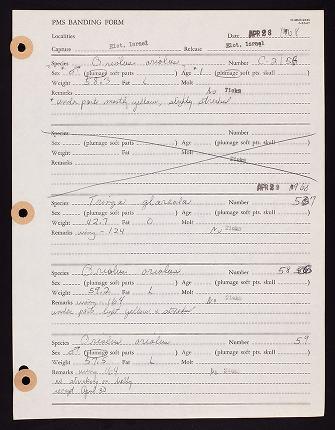 PMS BANDING FORM
Localities Date APR 28 1968
Capture Eilot, Israel Release Eilot, Israel
Species Oriolus oriolus Number C-2156
Sex * ♂ (plumage soft parts ) Age * 1 (plumage soft parts, skull )
Weight 58.3 Fat L Molt
Remarks No Ticks
* under parts mostly yellow, slightly streaked
Species Number
Sex (plumage soft parts ) Age (plumage soft parts, skull )
Weight Fat Molt
Remarks Ticks
APR 28 1968
Species Tringa glareola Number 57
Sex (plumage soft parts ) Age (plumage soft parts, skull )
Weight 42.7 Fat 0 Molt
Remarks wing - 124 No Ticks
Species Oriolus oriolus Number 58
Sex (plumage soft parts ) Age (plumage soft parts, skull )
Weight 59.2 Fat L Molt
Remarks wing - 164 No Ticks
under parts light yellow &
Species Oriolus oriolus Number 59
Sex ♂ (plumage soft parts ) Age (plumage soft parts, skull )
Weight 57.3 Fat L Molt
Remarks wing 164 No Ticks
no streaking on belly
recapt April 30